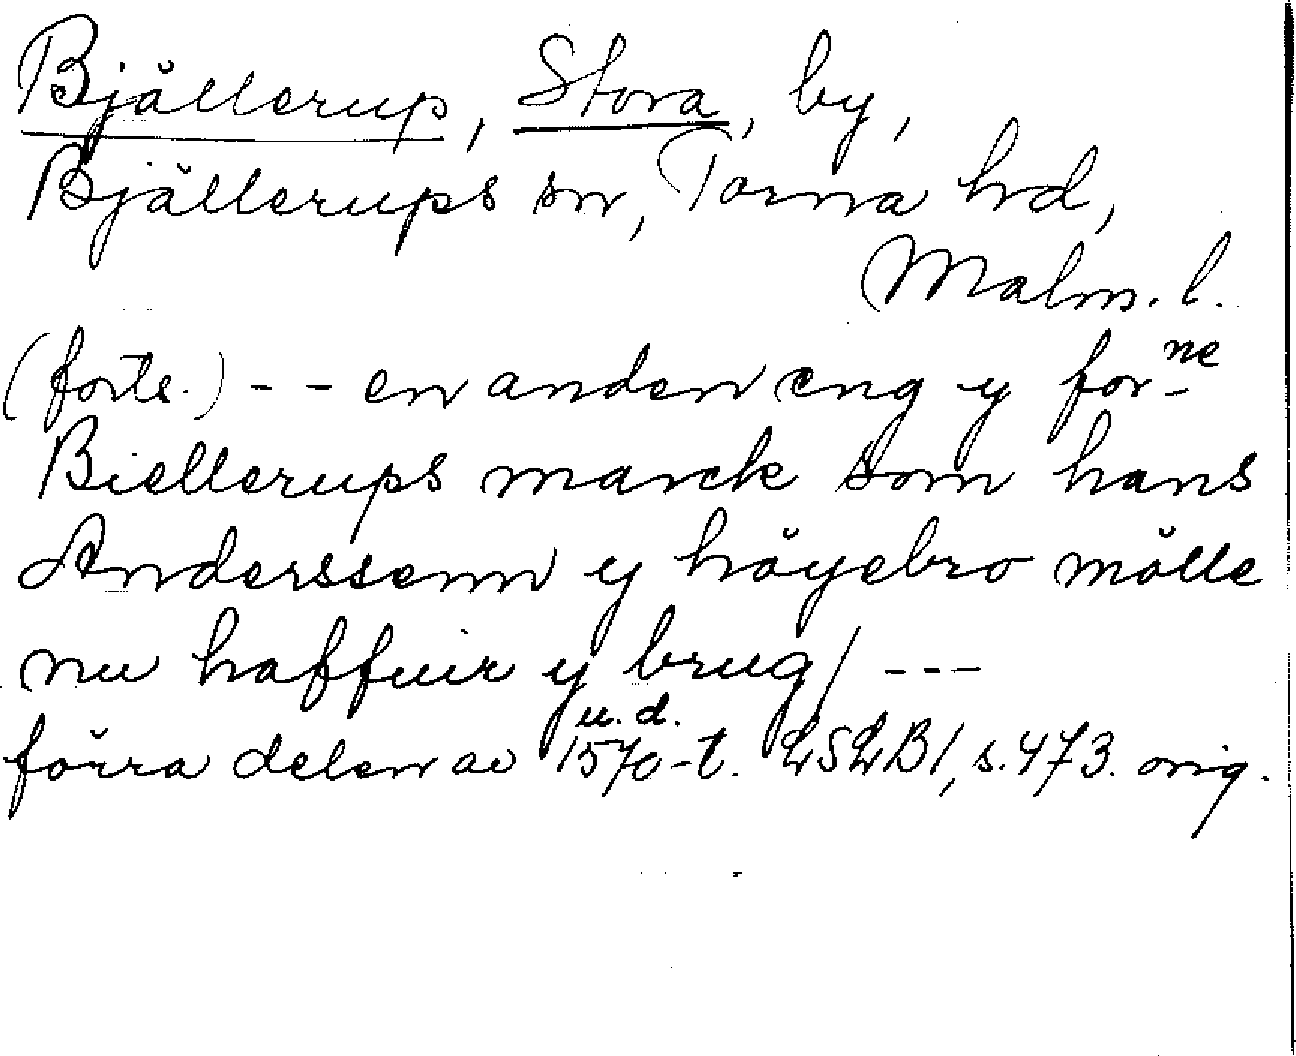 Bjällerup, Stora, by,
Bjällerups sn, Torna hd,
Malm. l.
(forts.) - - en anden eng y for-ne
Biellerups marck som hans
Anderssenn y höyebro mölle
nu haffuir y brug / ---
förra delen av u.d. 1570-t. LSLB 1, s. 473. orig.